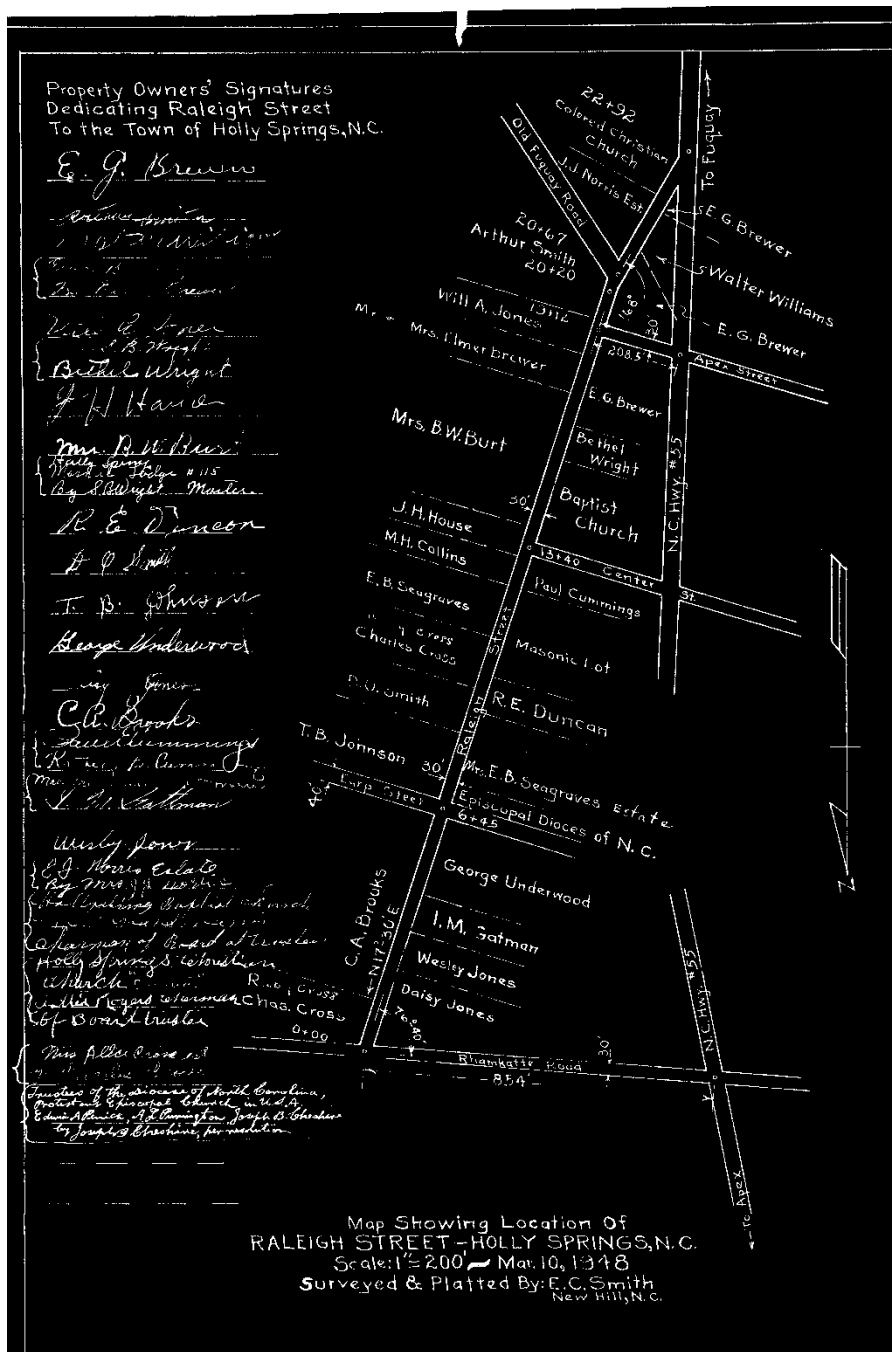 Property Owners' Signatures
Dedicating Raleigh Street
To the Town of Holly Springs, N.C.
E. G. Brewer
Arthur Smith
Bethel Wright
J H House
Mrs. B. W. Burt
Holly Springs
Masonic Lodge # 115
By S B Wright Master
R. E Duncan
D O Smith
T. B. Johnson
George Underwood
Jones
C. A. Brooks
Paul Cummings
I. M. Gattman
Wesley Jones
E. J. Norris Estate
By Mrs.
Holly Spring Baptist church
Chairman of Board of trustee
Holly Springs Christian
Church
Rogers chairman
of Board trustee
Miss Alice Cross
Trustees of the Diocese of North Carolina,
Protestant Episcopal Church in U.S.A.
Edwin A Penick, A L Purrington, Joseph B. Cheshire
by Joseph B Cheshire, per resolution
To Fuquay
22+92
Colored Christian
Church
J.J. Norris Est.
Old Fuquay Road
E.G. Brewer
Walter Williams
E. G. Brewer
20+67
Arthur Smith
20+20
Will A. Jones
Mr. & Mrs. Elmer Brewer
Mrs. B.W. Burt
208.5'
Apex Street
E.G. Brewer
Bethel
Wright
Baptist
Church
N.C. Hwy. #55
30'
J.H. House
M.H. Collins
E.B. Seagraves
Cross
Charles Cross
D.O. Smith
T.B. Johnson
13+40 Center St.
Paul Cummings
Masonic Lot
R.E. Duncan
Raleigh Street
30'
Mrs. E.B. Seagraves Estate
Episcopal Dioces of N.C.
40'
Earp Street
6+45
George Underwood
I.M. Gatman
Wesley Jones
Daisy Jones
C.A. Brooks
N17°30'E
Cross
Chas. Cross
0+00
76°40'
Rhamkatte Road
854'
30'
N.C. Hwy #55
To Apex
N
Map Showing Location Of
RALEIGH STREET - HOLLY SPRINGS, N.C.
Scale: 1"=200' ~ Mar. 10, 1948
Surveyed & Platted By: E.C. Smith
New Hill, N.C.